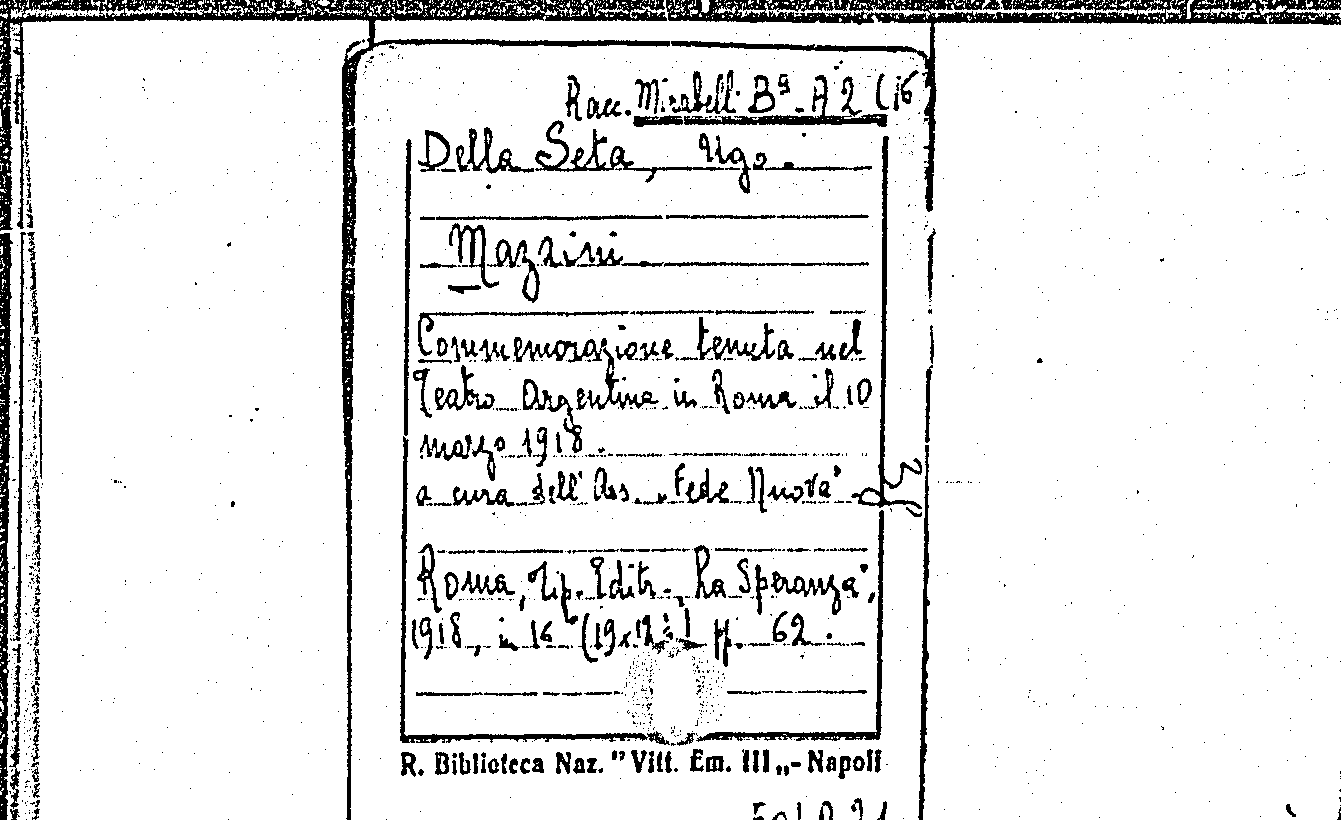 Racc. Mirabelli Bª - A 2 (16
Della Seta, Ugo.
Mazzini.
Commemorazione tenuta nel
Teatro Argentina in Roma il 10
marzo 1918.
a cura dell' Ass. „Fede Nuova"
Roma, Tip. Editr. „La Speranza",
1918, in 16° (19x12 pp. 62.
R. Biblioteca Naz. "Vitt. Em. III„ - Napoli